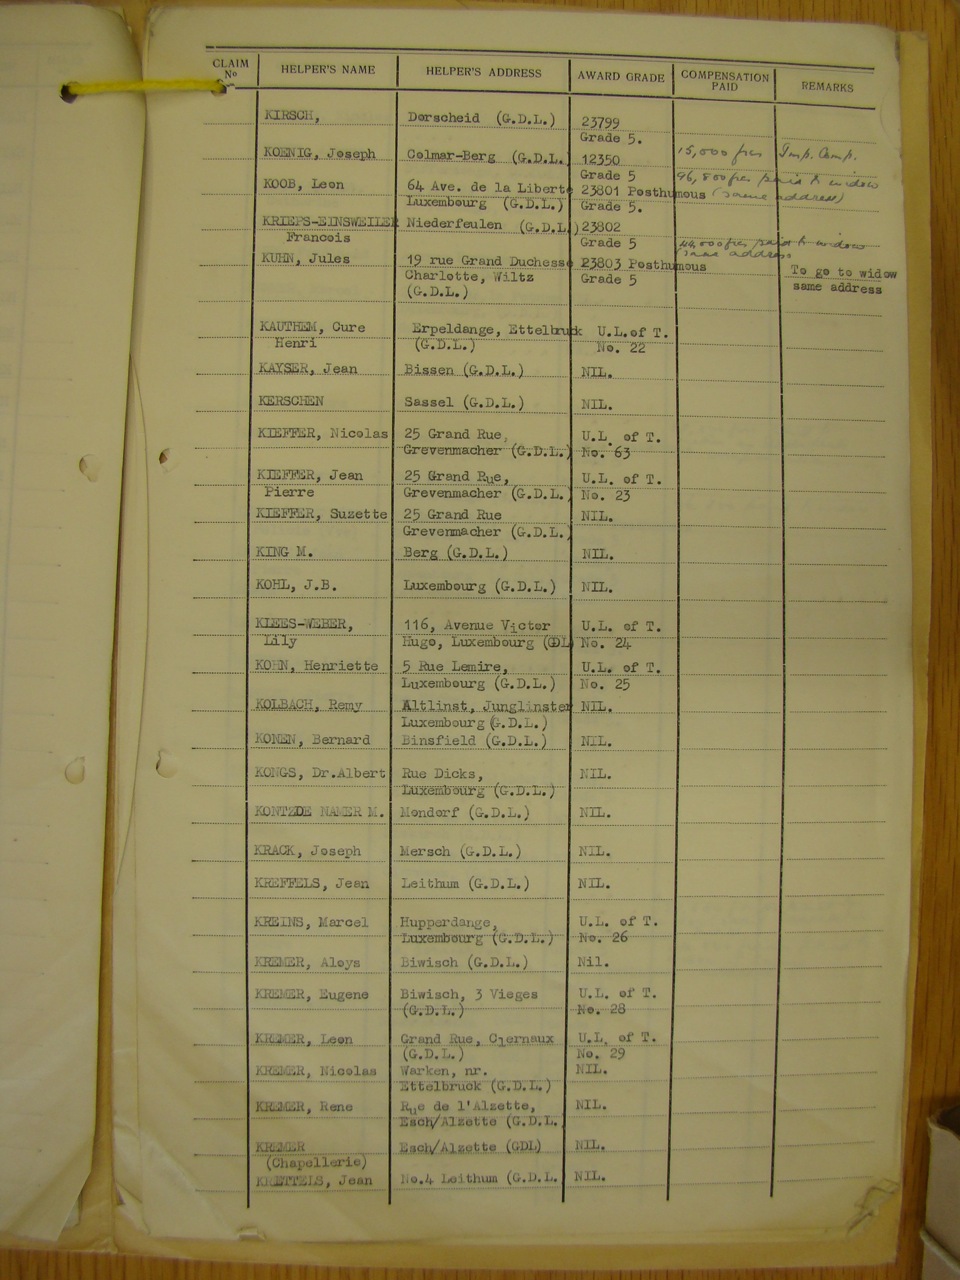 CLAIM No HELPER'S NAME HELPER'S ADDRESS AWARD GRADE COMPENSATION PAID REMARKS
KIRSCH, Dorscheid (G.D.L.) 23799
Grade 5.
KOENIG, Joseph Colmar-Berg (G.D.L. 12350 15,000 frs Imp. Comp.
Grade 5 96,800 frs paid to widow
KOOB, Leon 64 Ave. de la Liberte 23801 Posthumous (same address)
Luxembourg (G.D.L.) Grade 5.
KRIEPS-EINSWEILER Niederfeulen (G.D.L.) 23802
Francois Grade 5 frs paid to widow
same address
KUHN, Jules 19 rue Grand Duchesse 23803 Posthumous To go to widow
Charlotte, Wiltz Grade 5 same address
(G.D.L.)
KAUTHEM, Cure Erpeldange, Ettelbruck U.L.of T.
Henri (G.D.L.) No. 22
KAYSER, Jean Bissen (G.D.L.) NIL.
KERSCHEN Sassel (G.D.L.) NIL.
KIEFFER, Nicolas 25 Grand Rue, U.L. of T.
Grevenmacher (G.D.L.) No. 63
KIEFFER, Jean 25 Grand Rue, U.L. of T.
Pierre Grevenmacher (G.D.L. No. 23
KIEFFER, Suzette 25 Grand Rue NIL.
Grevenmacher (G.D.L.
KING M. Berg (G.D.L.) NIL.
KOHL, J.B. Luxembourg (G.D.L.) NIL.
KLEES-WEBER, 116, Avenue Victor U.L. of T.
Lily Hugo, Luxembourg (GDL No. 24
KOHN, Henriette 5 Rue Lemire, U.L. of T.
Luxembourg (G.D.L.) No. 25
KOLBACH, Remy Altlinst, Junglinster NIL.
Luxembourg (G.D.L.)
KONEN, Bernard Binsfield (G.D.L.) NIL.
KONGS, Dr.Albert Rue Dicks, NIL.
Luxembourg (G.D.L.)
KONTZDE NAMER M. Mondorf (G.D.L.) NIL.
KRACK, Joseph Mersch (G.D.L.) NIL.
KREFFELS, Jean Leithum (G.D.L.) NIL.
KREINS, Marcel Hupperdange, U.L. of T.
Luxembourg (G.D.L.) No. 26
KREMER, Aloys Biwisch (G.D.L.) Nil.
KREMER, Eugene Biwisch, 3 Vieges U.L. of T.
(G.D.L.) No. 28
KREMER, Leon Grand Rue, Clernaux U.L. of T.
(G.D.L.) No. 29
KREMER, Nicolas Warken, nr. NIL.
Ettelbruck (G.D.L.)
KREMER, Rene Rue de l'Alzette, NIL.
Esch/Alzette (G.D.L.
KREMER Esch/Alzette (GDL) NIL.
(Chapellerie)
KRETTELS, Jean No.4 Leithum (G.D.L. NIL.